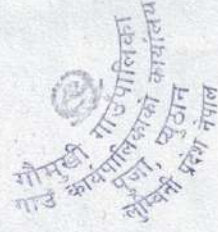 गौमुखी गाउँपालिका
गाउँ कार्यपालिकाको कार्यालय
पुजा, प्युठान
लुम्बिनी प्रदेश नेपाल